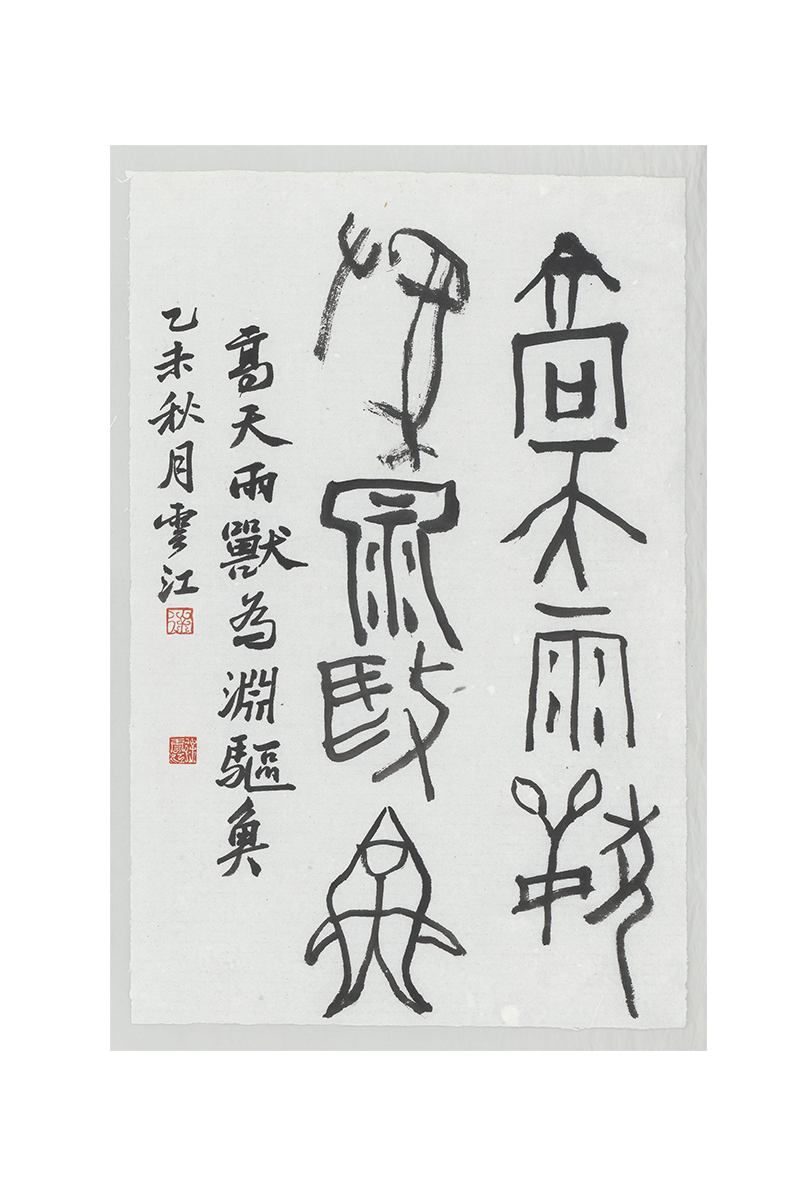 高天雨獸
為淵驅魚
高天雨獸為淵驅魚
乙未秋月雲江